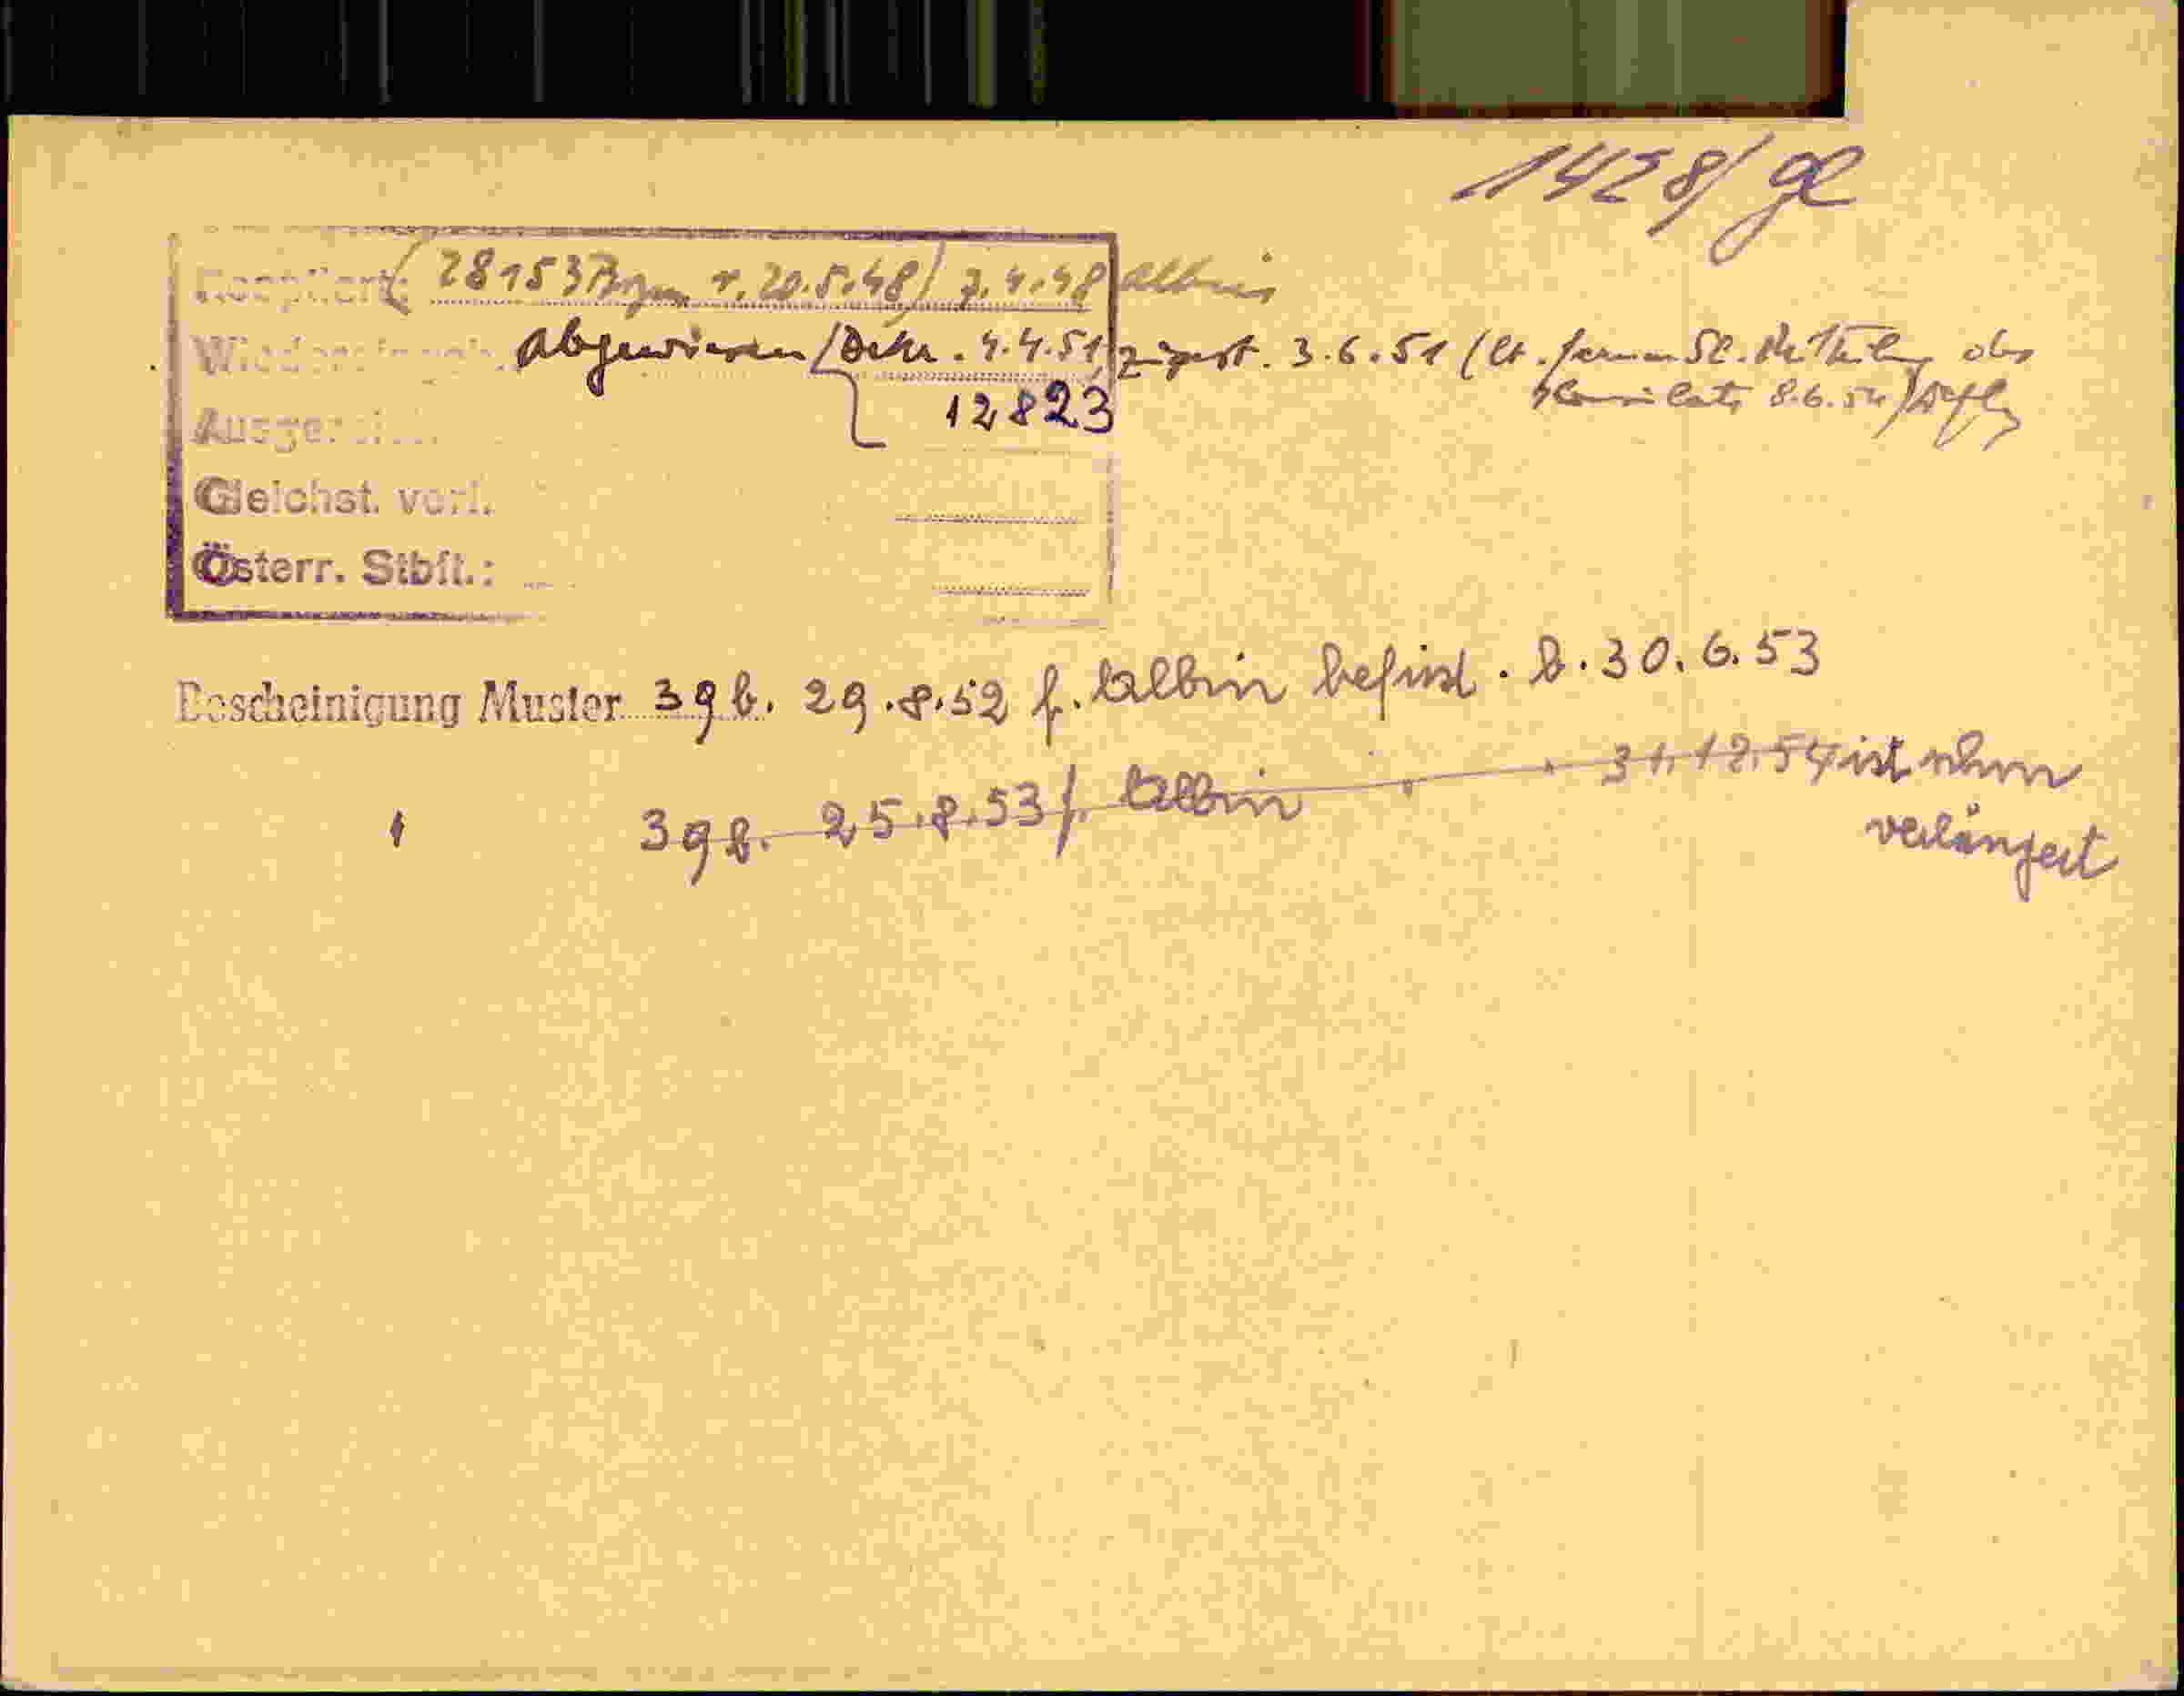 1428/gl
Reoptiert: (28153 v. 20.5.48) 7.4.48 Albin
abgewiesen (Dekr. 4.4.51, zugest. 3.6.51 (lt. Mitteilung des
12823 Konsilats 8.6.51)
Gleichst. verl.
Österr. Stbft.:
Bescheinigung Muster 39b. 29.8.52 f. Albin befrist. b. 30.6.53
39b. 25.8.53 f. Albin 31.12.54 ist schon
verlängert